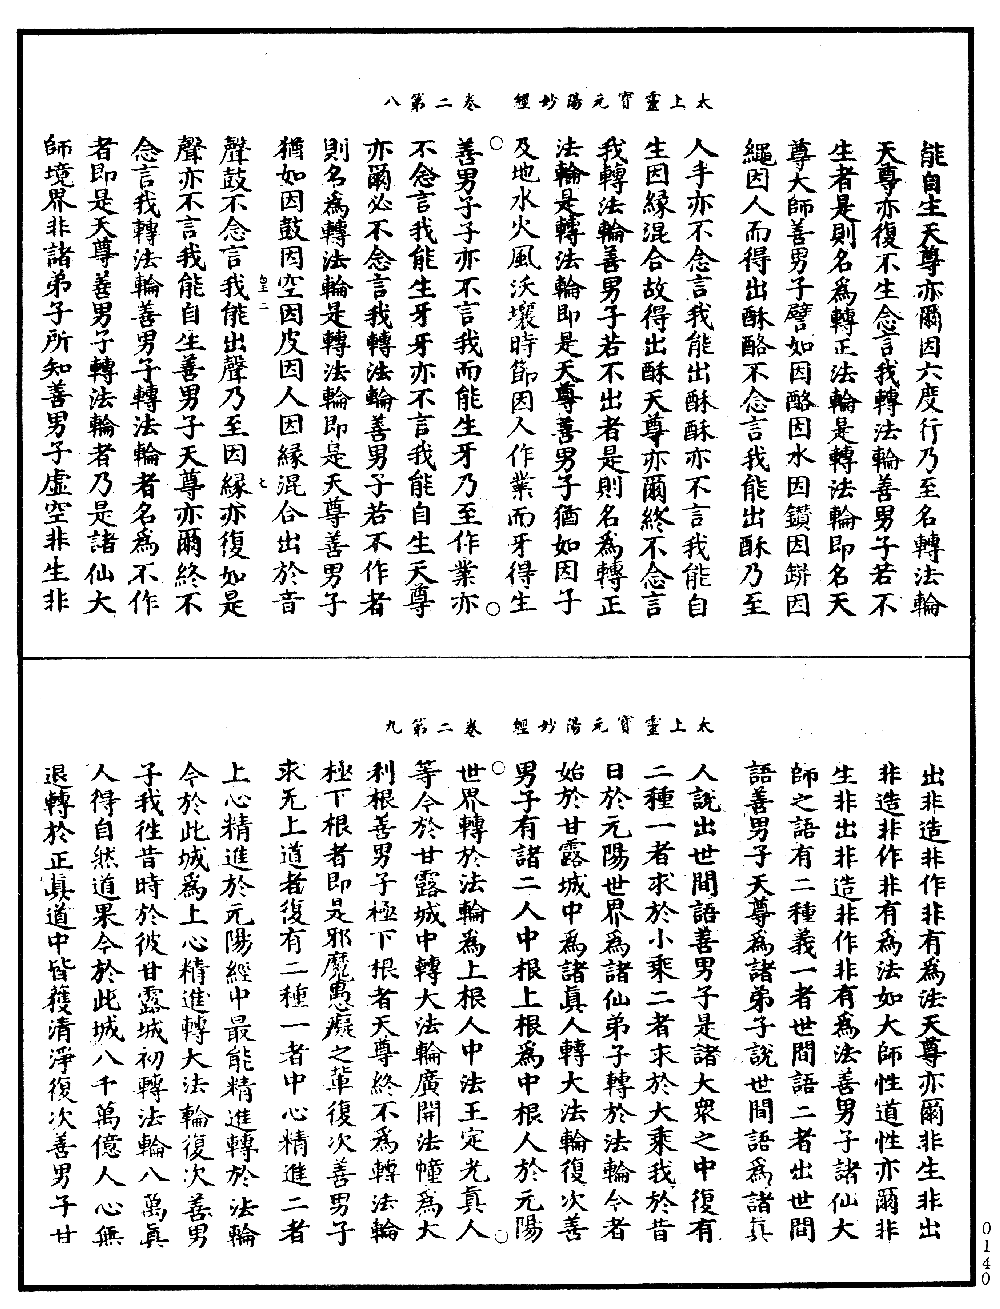 太上靈寶元陽妙經　卷二第八
能自生天尊亦爾因六度行乃至名轉法輪
天尊亦復不生念言我轉法輪善男子若不
生者是則名為轉正法輪是轉法輪即名天
尊大師善男子譬如因酪因水因鑽因缾因
繩因人而得出酥酪不念言我能出酥乃至
人手亦不念言我能出酥酥亦不言我能自
生因緣混合故得出酥天尊亦爾終不念言
我轉法輪善男子若不出者是則名為轉正
法輪是轉法輪即是天尊善男子猶如因子
及地水火風沃壤時節因人作業而牙得生
善男子子亦不言我而能生牙乃至作業亦
不念言我能生牙牙亦不言我能自生天尊
亦爾必不念言我轉法輪善男子若不作者
則名為轉法輪是轉法輪即是天尊善男子
猶如因鼓因空因皮因人因緣混合出於音
聲鼓不念言我能出聲乃至因緣亦復如是
聲亦不言我能自生善男子天尊亦爾終不
念言我轉法輪善男子轉法輪者名為不作
者即是天尊善男子轉法輪者乃是諸仙大
師境界非諸弟子所知善男子虛空非生非
太上靈寶元陽妙經　卷二第九
出非造非作非有為法天尊亦爾非生非出
非造非作非有為法如大師性道性亦爾非
生非出非造非作非有為法善男子諸仙大
師之語有二種義一者世間語二者出世間
語善男子天尊為諸弟子說世間語為諸真
人說出世間語善男子是諸大眾之中復有
二種一者求於小乘二者求於大乘我於昔
日於元陽世界為諸仙弟子轉於法輪今者
始於甘露城中為諸真人轉大法輪復次善
男子有諸二人中根上根為中根人於元陽
世界轉於法輪為上根人中法王定光真人
等今於甘露城中轉大法輪廣開法幢為大
利根善男子極下根者天尊終不為轉法輪
極下根者即是邪魔愚癡之輩復次善男子
求无上道者復有二種一者中心精進二者
上心精進於元陽經中最能精進轉於法輪
今於此城為上心精進轉大法輪復次善男
子我往昔時於彼甘露城初轉法輪八萬真
人得自然道果今於此城八千萬億人心無
退轉於正真道中皆獲清淨復次善男子甘
0140